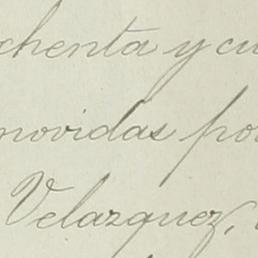 chenta y cu
movidas po
Velazquez,